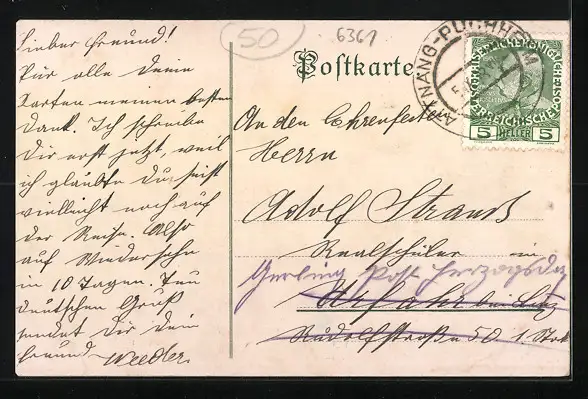 Lieber Freund!
Für alle Deine
Karten meinen besten
Dank. Ich schreibe
Dir erst jetzt, weil
ich glaubte Du seist
vielleicht noch auf
der Reise. Also
auf Wiedersehn
in 10 Tagen. Teu
deutschen Gruß
sendet Dir Dein
Freund
50
6361
Postkarte
ATTNANG-PUCHHEIM
KAISERLICHE KÖNIGLICHE
ÖSTERREICHISCHE POST
5 HELLER 5
An den Ehrenfesten
Herrn
Adolf Strauß
Realschüler in
Gerling Post Herzogsdf
Urfahr bei Linz
Rudolfstraße 50. 1. Stock